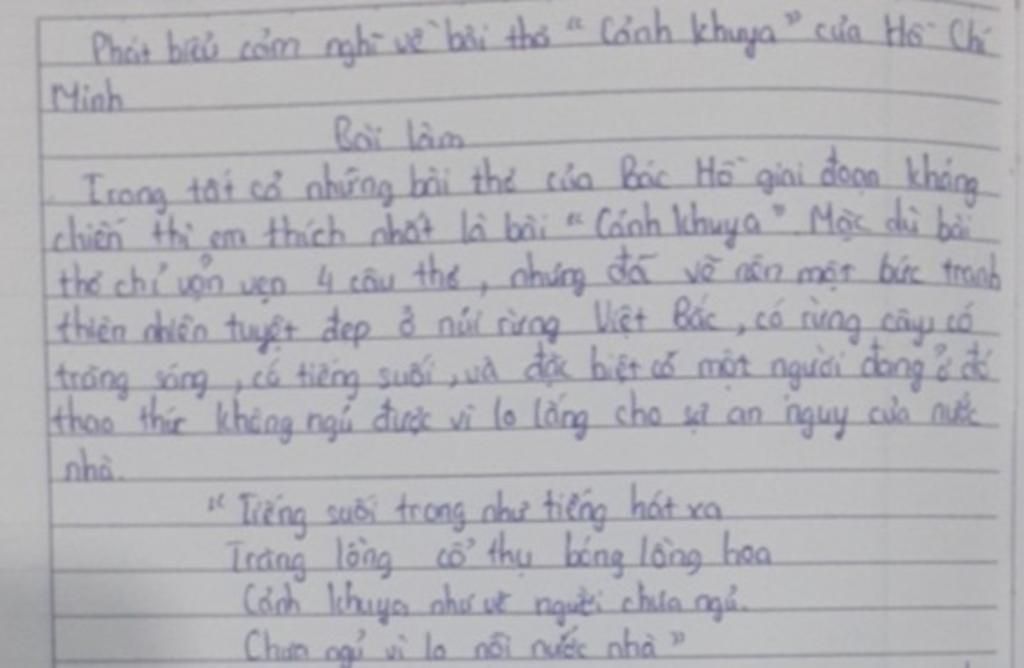 Phát biểu cảm nghĩ về bài thơ "Cảnh khuya" của Hồ Chí
Minh
Bài làm
Trong tất cả những bài thơ của Bác Hồ giai đoạn kháng
chiến thì em thích nhất là bài "Cảnh khuya". Mặc dù bài
thơ chỉ vỏn vẹn 4 câu thơ, nhưng đã vẽ nên một bức tranh
thiên nhiên tuyệt đẹp ở núi rừng Việt Bắc, có rừng cây, có
trăng sáng, có tiếng suối, và đặc biệt có một người đang ở đó
thao thức không ngủ được vì lo lắng cho sự an nguy của nước
nhà.
"Tiếng suối trong như tiếng hát xa
Trăng lồng cổ thụ bóng lồng hoa
Cảnh khuya như vẽ người chưa ngủ.
Chưa ngủ vì lo nỗi nước nhà"